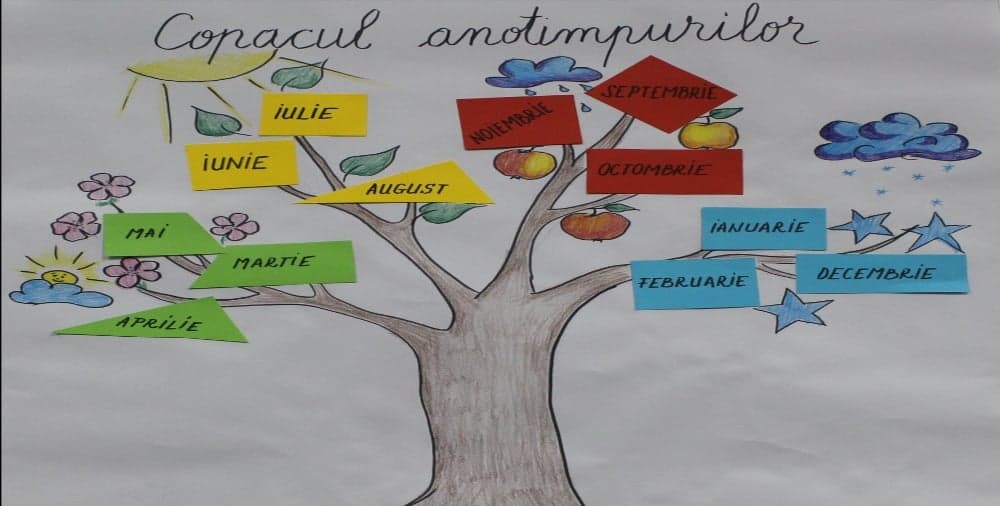 Copacul anotimpurilor
IULIE
IUNIE
AUGUST
MAI
MARTIE
APRILIE
NOIEMBRIE
SEPTEMBRIE
OCTOMBRIE
IANUARIE
FEBRUARIE
DECEMBRIE